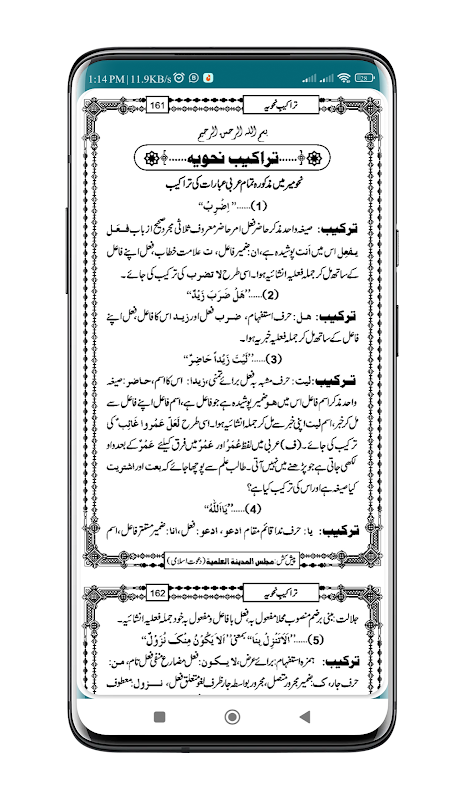 1:14 PM | 11.9KB/s
161
تراکیب نحویہ
بسم اللہ الرحمن الرحیم
......تراکیب نحویہ......
نحو میر میں مذکورہ تمام عربی عبارات کی تراکیب
(1)......”اِضْرِبْ“
ترکیب: صیغہ واحد مذکر حاضر فعل امر حاضر معروف ثلاثی مجرد صحیح از باب فَعَلَ
یفعِل اس میں اَنت پوشیدہ ہے، ان: ضمیر فاعل، ت علامت خطاب، فعل اپنے فاعل
کے ساتھ مل کر جملہ فعلیہ انشائیہ ہوا۔ اسی طرح لا تضرب کی ترکیب کی جائے۔
(2)......”هَلْ ضَرَبَ زَیْدٌ“
ترکیب: هل: حرف استفہام، ضرب فعل اور زید اس کا فاعل، فعل اپنے
فاعل کے ساتھ مل کر جملہ فعلیہ خبریہ ہوا۔
(3)......”لَیْتَ زَیْداً حَاضِرٌ“
ترکیب: لیت: حرف مشبہ بہ فعل برائے تمنی، زیدا: اس کا اسم، حاضر: صیغہ
واحد مذکر اسم فاعل اس میں هو ضمیر پوشیدہ ہے جو فاعل ہے، اسم فاعل اپنے فاعل سے
مل کر خبر، اسم لیت اپنی خبر سے مل کر جملہ انشائیہ ہوا۔ اسی طرح لَعَلَّ عَمْروا غَائِبٌ کی
ترکیب کی جائے۔ (ف) عربی میں لفظ عُمَرُ اور عَمْرٌ میں فرق کیلئے عَمْرٌ کے بعد واو
لکھی جاتی ہے جو پڑھنے میں نہیں آتی۔ طالب علم سے پوچھا جائے کہ بعت اور اشتریت
کیا صیغہ ہے اور اس کی ترکیب کیا ہے؟
(4)......”یَا اَللّٰهُ“
ترکیب: یا: حرف ندا قائم مقام ادعو، ادعو: فعل، انا: ضمیر مستتر فاعل، اسم
پیش کش: مجلس المدینة العلمیة (دعوت اسلامی)
162
تراکیب نحویہ
جلالت: مبنی بر ضم منصوب محلا مفعول بہ، فعل با فاعل و مفعول بہ خود جملہ فعلیہ انشائیہ۔
(5)......”اَلَاتَنْزِلُ بِنَا“ بمعنی ”اَلَا یَکُوْنُ مِنْکَ نُزُوْلٌ“
ترکیب: ہمزہ استفہام: برائے عرض، لا یکون: فعل مضارع منفی فعل تام، من:
حرف جار، ک: ضمیر مجرور متصل، مجرور بواسطہ جار ظرف لغو متعلق فعل، نزول: معطوف